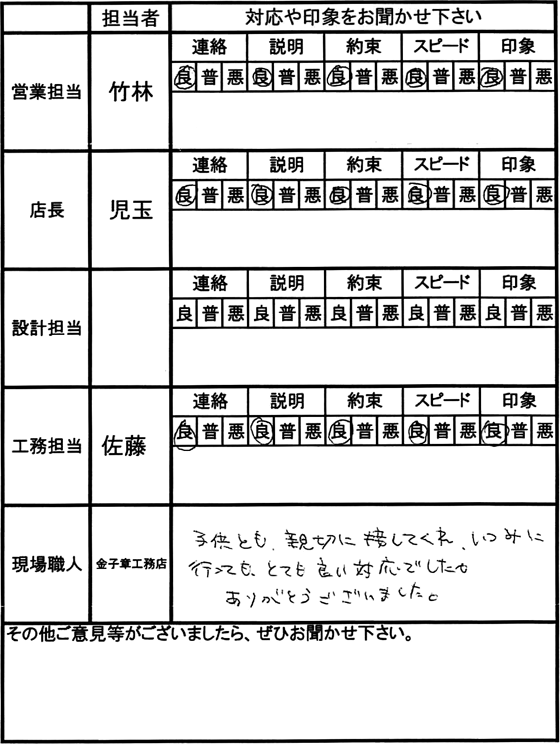 担当者 対応や印象をお聞かせ下さい
営業担当 竹林
連絡 説明 約束 スピード 印象
良 普 悪 良 普 悪 良 普 悪 良 普 悪 良 普 悪
店長 児玉
連絡 説明 約束 スピード 印象
良 普 悪 良 普 悪 良 普 悪 良 普 悪 良 普 悪
設計担当
連絡 説明 約束 スピード 印象
良 普 悪 良 普 悪 良 普 悪 良 普 悪 良 普 悪
工務担当 佐藤
連絡 説明 約束 スピード 印象
良 普 悪 良 普 悪 良 普 悪 良 普 悪 良 普 悪
現場職人 金子章工務店
子供とも、親切に接してくれ、いつみに
行っても、とても良い対応でした。
ありがとうございました。
その他ご意見等がございましたら、ぜひお聞かせ下さい。